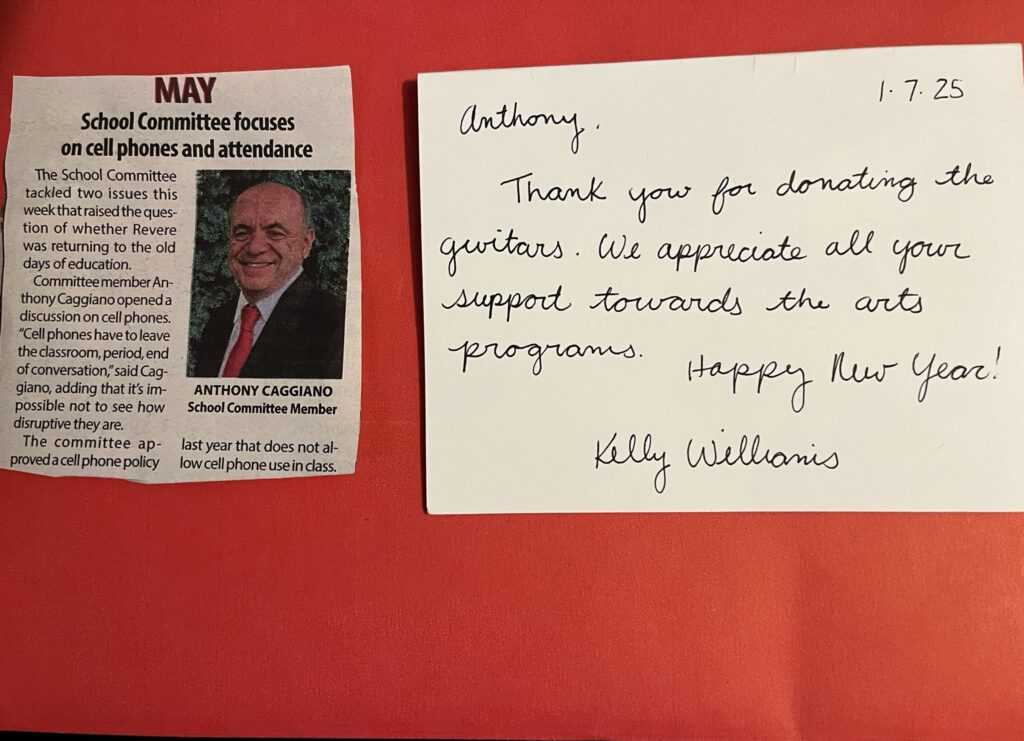 MAY
School Committee focuses
on cell phones and attendance
The School Committee
tackled two issues this
week that raised the ques-
tion of whether Revere
was returning to the old
days of education.
Committee member An-
thony Caggiano opened a
discussion on cell phones.
"Cell phones have to leave
the classroom, period, end
of conversation," said Cag-
giano, adding that it's im-
possible not to see how
disruptive they are.
The committee ap-
proved a cell phone policy
ANTHONY CAGGIANO
School Committee Member
last year that does not al-
low cell phone use in class.
1.7.25
Anthony,
Thank you for donating the
guitars. We appreciate all your
support towards the arts
programs.
Happy New Year!
Kelly Williams